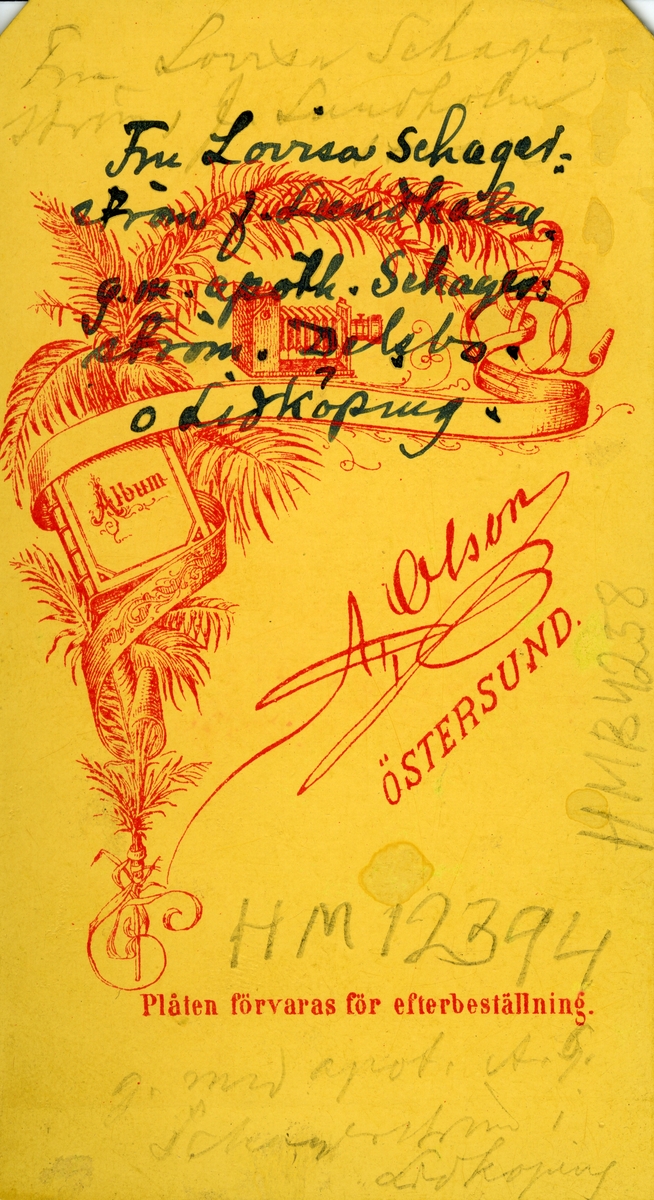 Fru Lovisa Schager-
ström f. Lundholm
Fru Lovisa Schager-
ström f. Lundholm.
g.m. apoth. Schager-
ström. Delsbo.
o Lidköping.
Album
A Olson
ÖSTERSUND.
HMB4258
HM 12394
Plåten förvaras för efterbeställning.
g. med apot. A.
Schagerström i
Lidköping